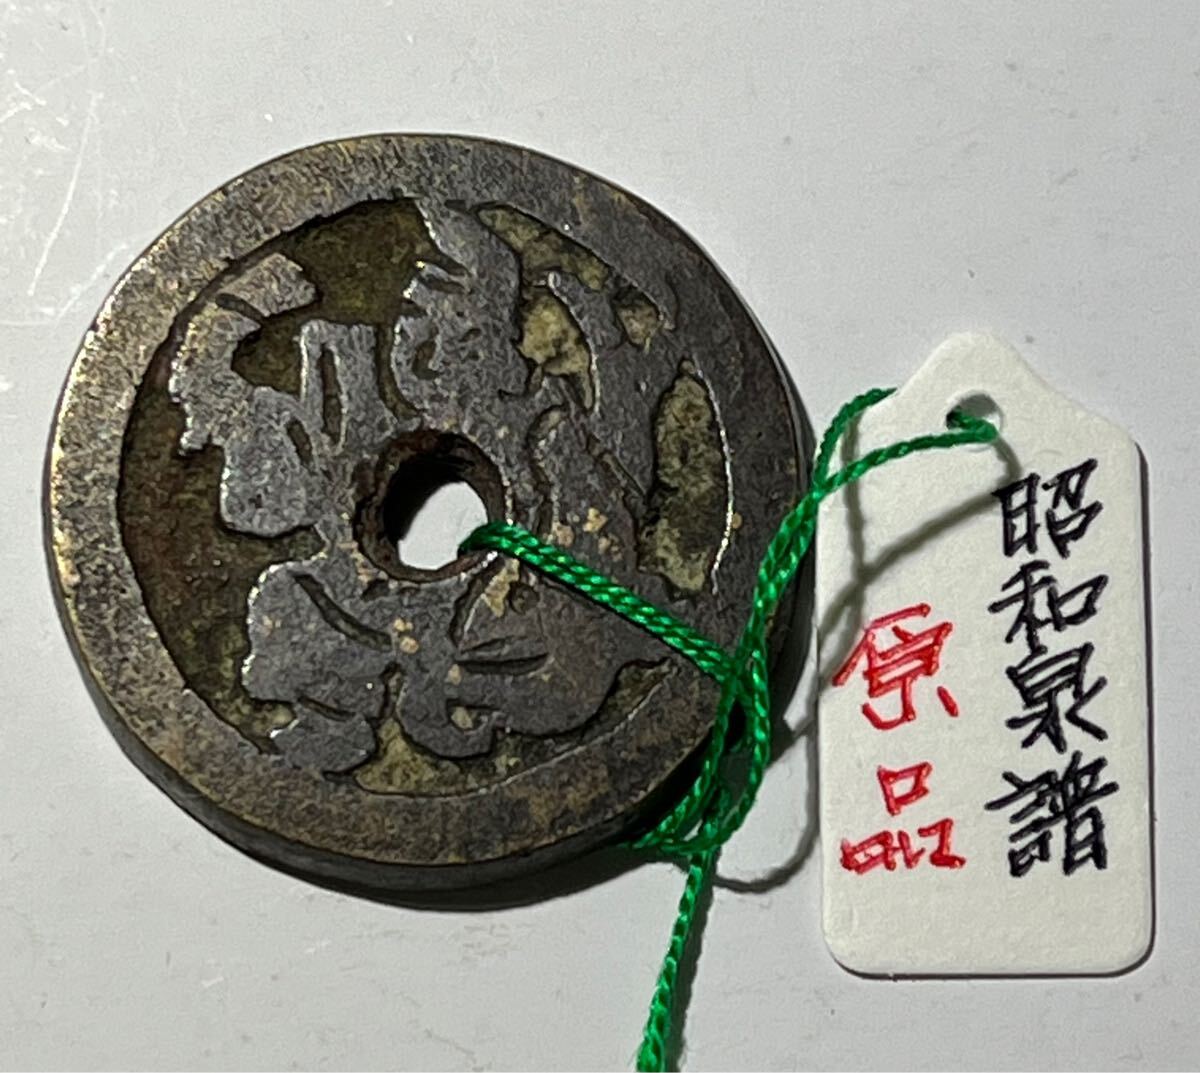 昭和泉譜
原品